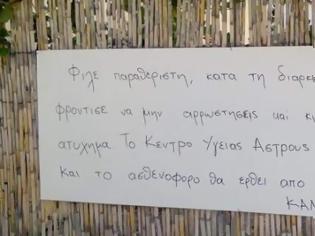 Φιλε παραθεριστη, κατα τη διαρκε
φροντισε να μην αρρωστησεις και κι
ατυχημα Το Κεντρο Υγειας Αστρους
Και το ασθενοφορο θα ερθει απο
ΚΑΝ